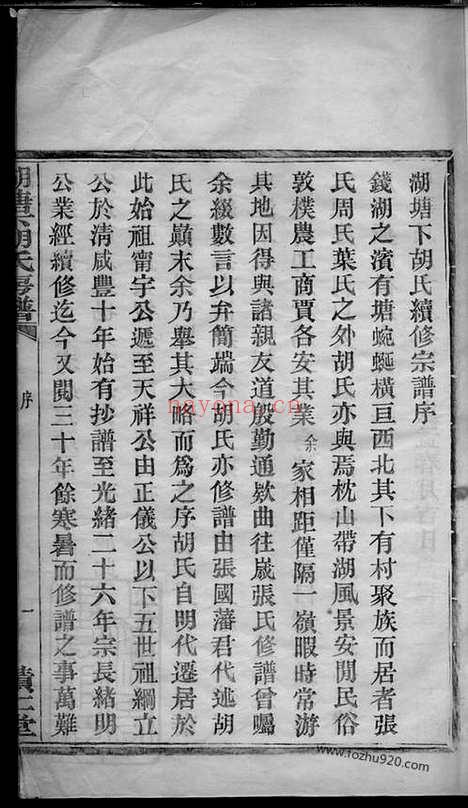 湖塘下胡氏續修宗譜序
錢湖之濱有塘蜿蜒橫亘西北其下有村聚族而居者張
氏周氏葉氏之外胡氏亦與焉枕山帶湖風景安閒民俗
敦樸農工商賈各安其業余家相距僅隔一嶺暇時常游
其地因得與諸親友道殷勤通欵曲往歲張氏修譜曾囑
余綴數言以弁簡端今胡氏亦修譜由張國藩君代述胡
氏之巔末余乃舉其大略而爲之序胡氏自明代遷居於
此始祖甯宇公遞至天祥公由正儀公以下五世祖綱立
公於清咸豐十年始有抄譜至光緒二十六年宗長緒明
公業經續修迄今又閱三十年餘寒暑而修譜之事萬難
胡氏房譜
序
一
nayona.cn
www.tozhu920.com